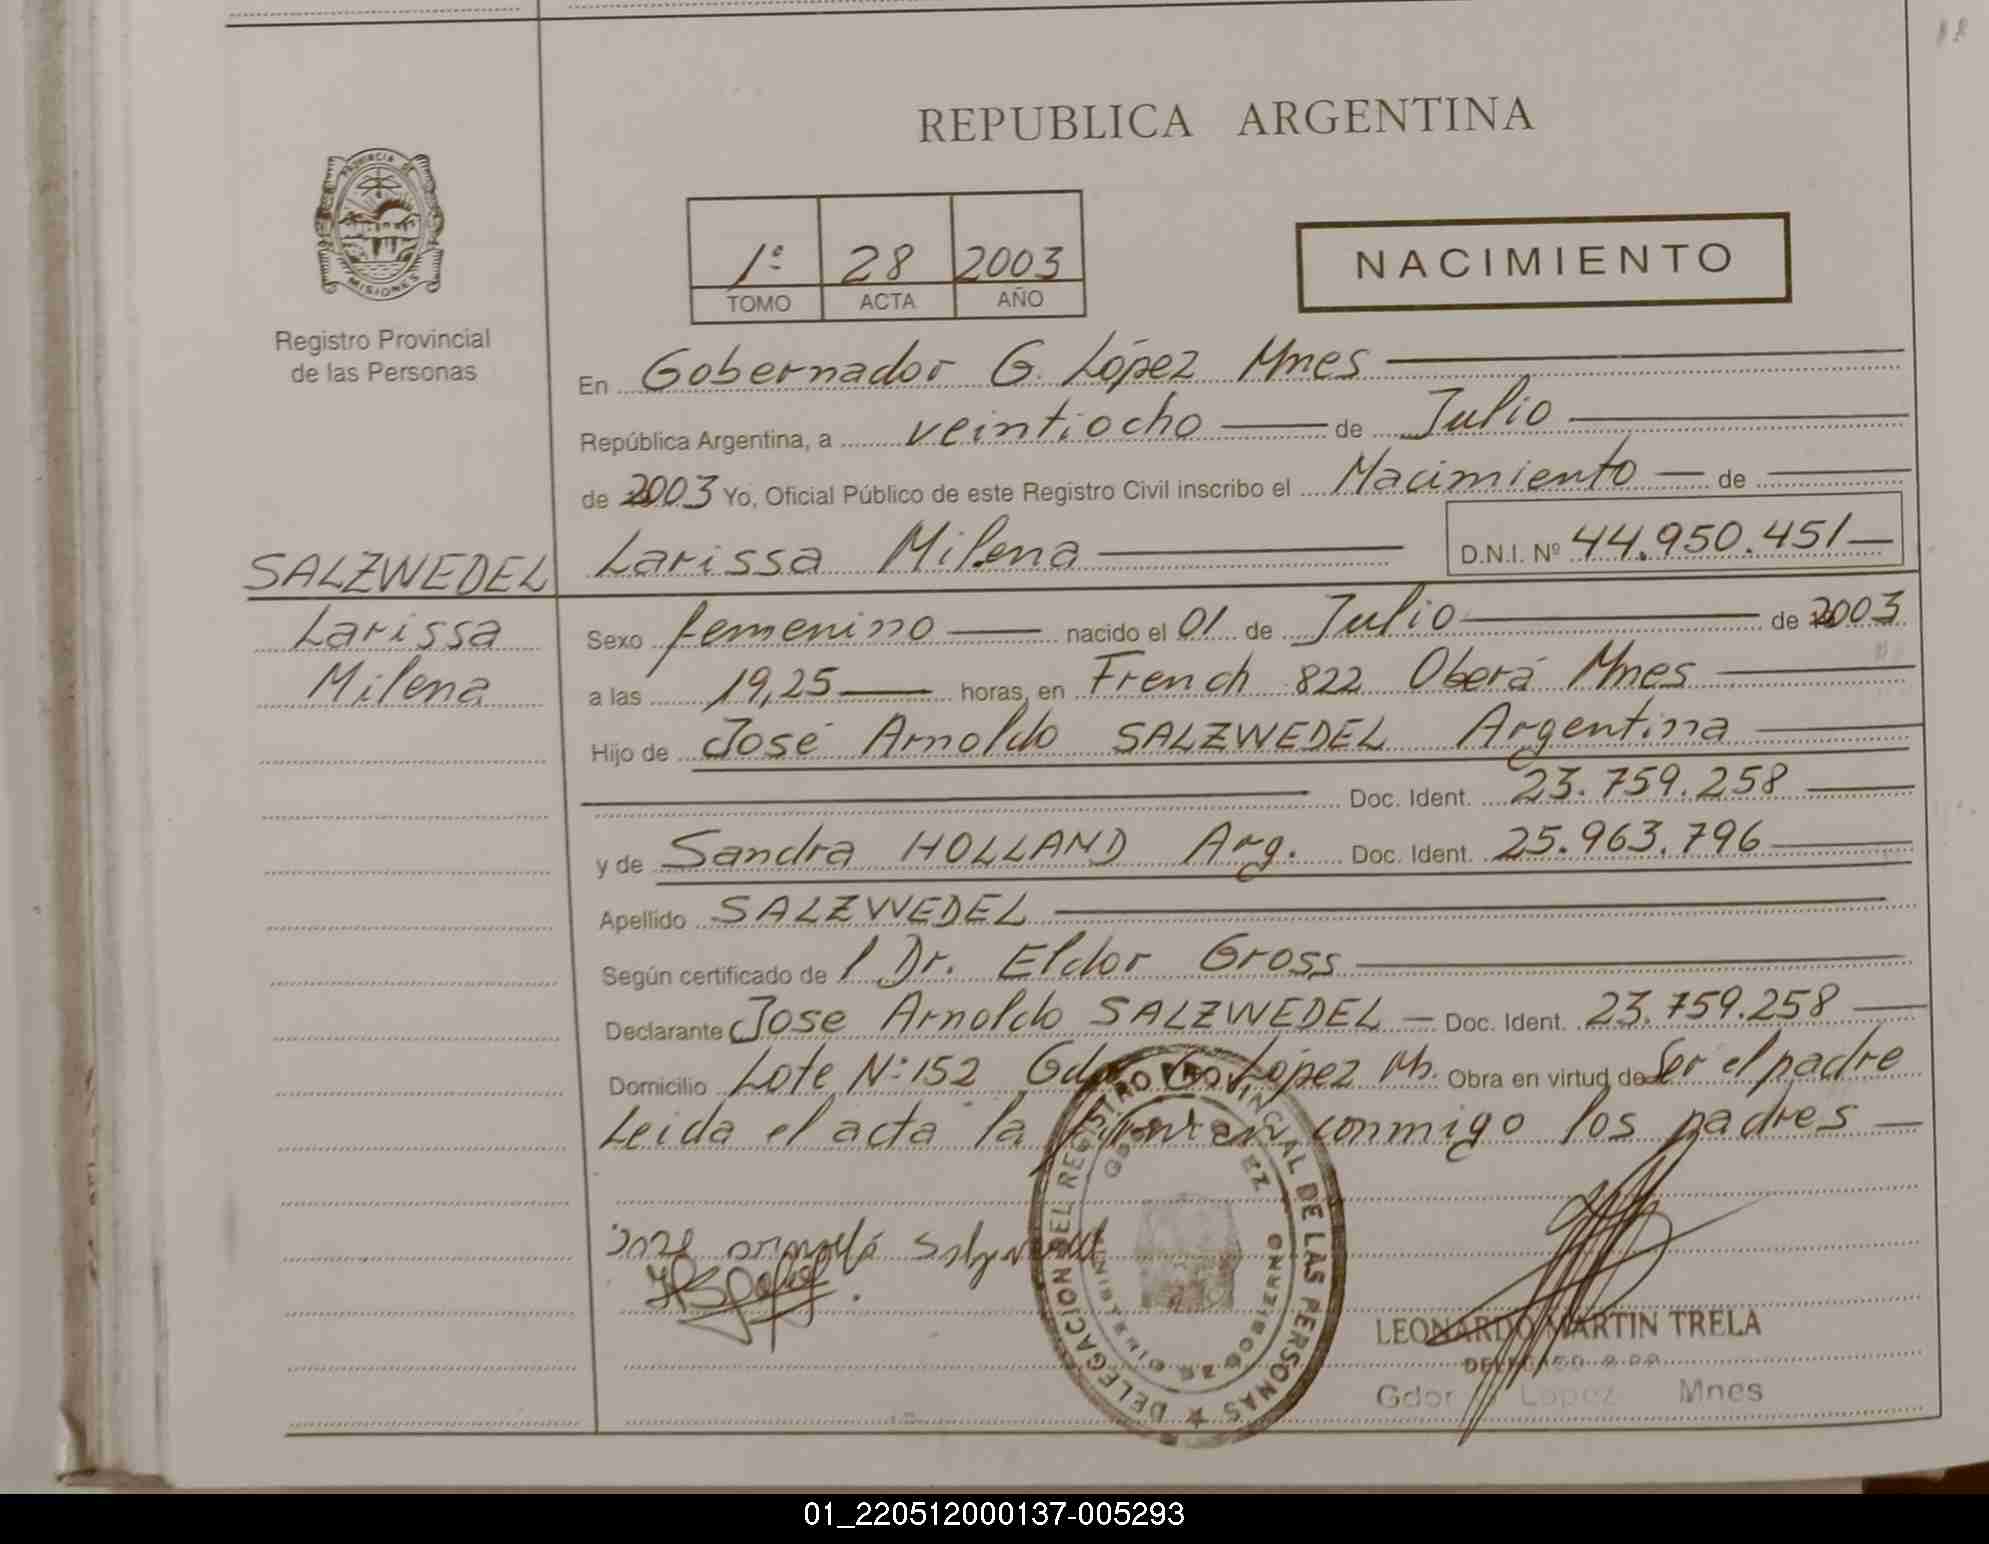 REPUBLICA ARGENTINA
PROVINCIA DE
MISIONES
Registro Provincial
de las Personas
1º 28 2003
TOMO ACTA AÑO
NACIMIENTO
En Gobernador G. López Mnes
República Argentina, a veintiocho de Julio
de 2003 Yo, Oficial Público de este Registro Civil inscribo el Nacimiento de
Larissa Milena D.N.I. Nº 44.950.451
SALZWEDEL
Larissa
Milena
Sexo femenino nacido el 01 de Julio de 2003
a las 19,25 horas, en French 822 Oberá Mnes
Hijo de José Arnoldo SALZWEDEL Argentina
Doc. Ident. 23.759.258
y de Sandra HOLLAND Arg. Doc. Ident. 25.963.796
Apellido SALZWEDEL
Según certificado de / Dr. Eldor Gross
Declarante Jose Arnoldo SALZWEDEL Doc. Ident. 23.759.258
Domicilio Lote Nº 152 Gdor G. López Mn. Obra en virtud de Ser el padre
Leida el acta la firman conmigo los padres
DELEGACION DEL REGISTRO PROVINCIAL DE LAS PERSONAS
MINISTERIO DE GOBIERNO
LEONARDO MARTIN TRELA
Gdor Lopez Mnes
01_220512000137-005293